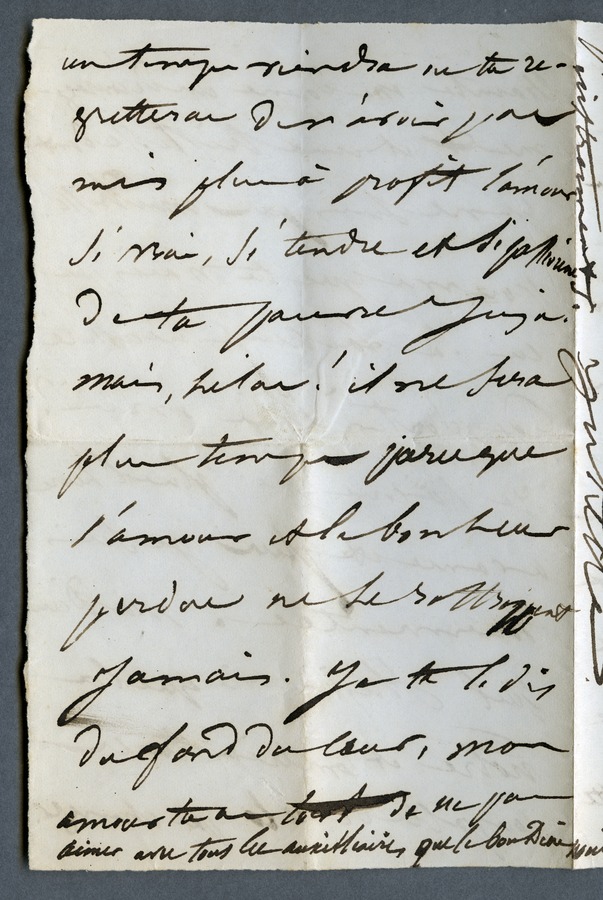 un temps viendra où tu re-
gretteras de n'avoir pas
mis plus à profit l'amour
si vrai, si tendre et si passionné
de ta pauvre Juju.
mais, hélas! il ne sera
plus temps parceque
l'amour et le bonheur
perdus ne se rattrapent
jamais. Je te le dis
du fond du cœur, mon
amour tu as tort de ne pas
aimer avec tous les auxiliaires que le bon Dieu
Juliette